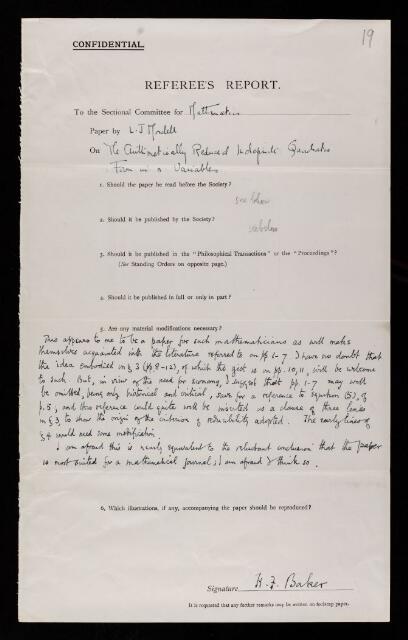 19
CONFIDENTIAL.
REFEREE'S REPORT.
To the Sectional Committee for Mathematics
Paper by L. J Mordell
On The Arithmetically Reduced Indefinite Quadratic
Form in n Variables
1. Should the paper be read before the Society?
see below
2. Should it be published by the Society?
see below
3. Should it be published in the "Philosophical Transactions" or the "Proceedings"?
(See Standing Orders on opposite page.)
4. Should it be published in full or only in part?
5. Are any material modifications necessary?
This appears to me to be a paper for such mathematicians as will make
themselves acquainted with the literature referred to on pp 1-7. I have no doubt that
the idea embodied in § 3 (pp 8-12), of which the gist is on pp. 10, 11, will be welcome
to such. But, in view of the need for economy, I suggest that pp. 1-7 may well
be omitted, being only historical and critical, save for a reference to equation (5), of
p. 5, and this reference could quite well be inserted in a clause of three lines
in § 3 to show the origin of the criterion of reducibility adopted. The early lines of
§ 4 would need some modification.
I am afraid this is nearly equivalent to the reluctant conclusion that the paper
is most suited for a mathematical journal; I am afraid I think so.
6. Which illustrations, if any, accompanying the paper should be reproduced?
Signature H. F. Baker
It is requested that any further remarks may be written on foolscap paper.